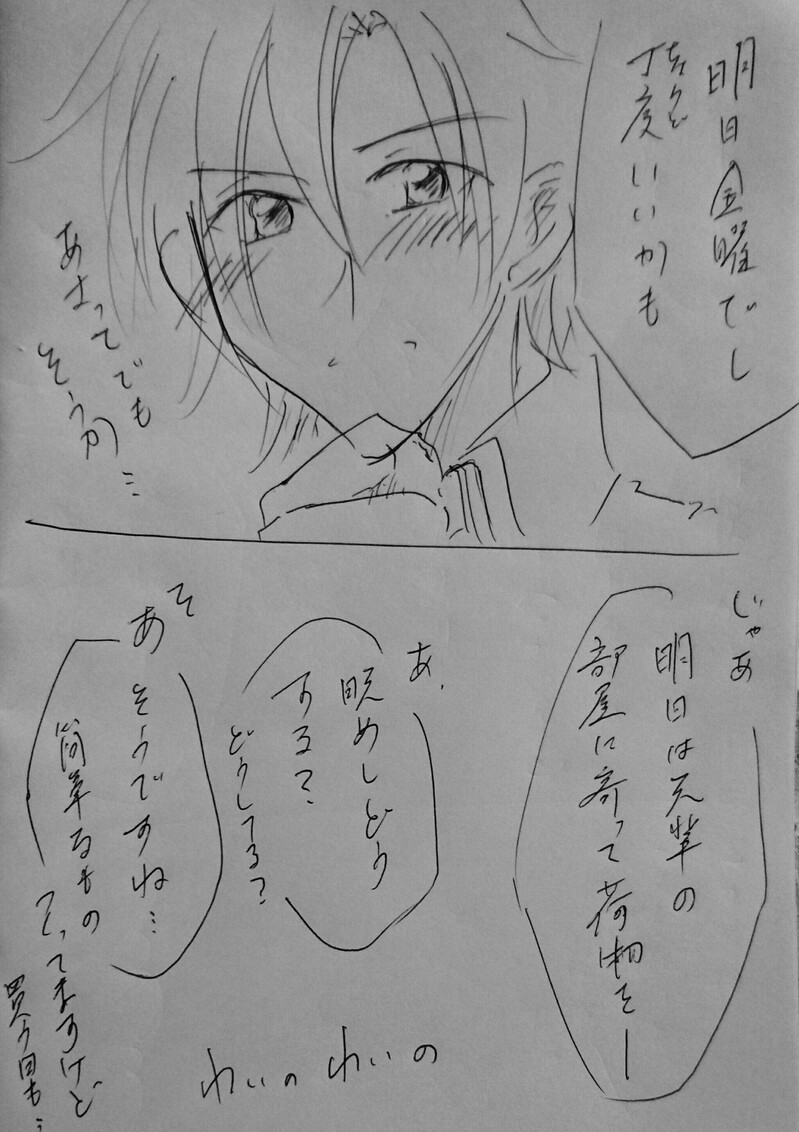 明日金曜でし
ちょうど
丁度いいかも
あさってでも
そうか…
じゃあ
明日は先輩の
部屋に寄って荷物をー
あ、
晩めしどう
する?
どうしてる?
そ
あ
そうですね…
簡単なもの
つくってますけど
買う日も…
わいのわいの